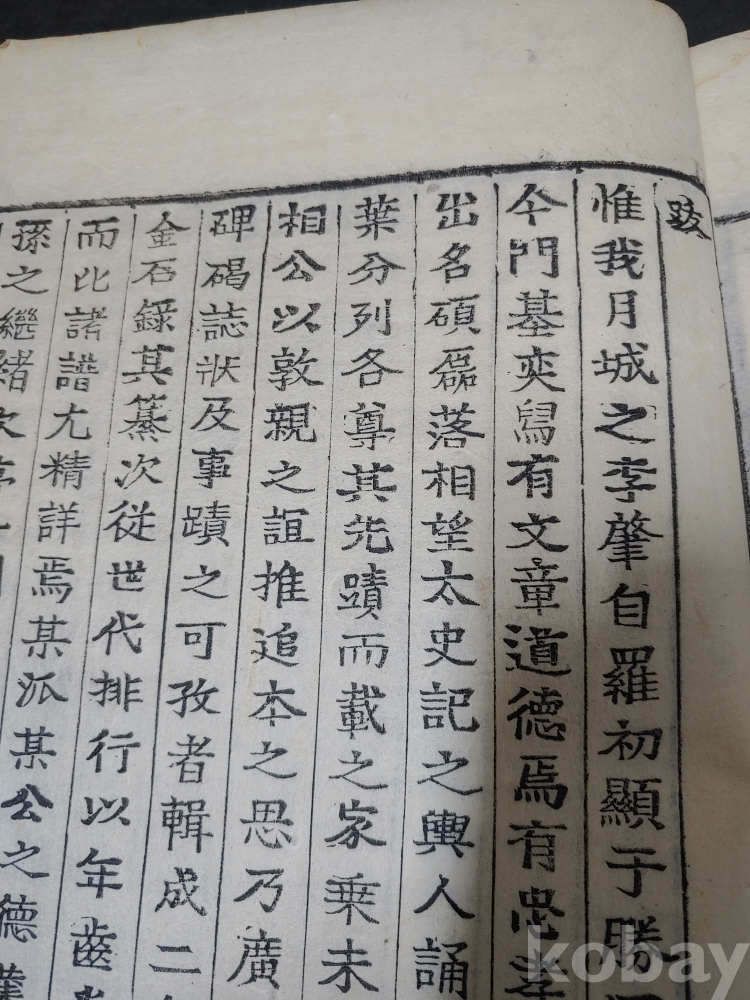 跋
惟我月城之李肇自羅初顯于勝
今門基奕舄有文章道德焉有忠孝
出名碩磊落相望太史記之輿人誦
葉分列各尊其先蹟而載之家乗未
相公以敦親之誼推追本之思乃廣
碑碣誌狀及事蹟之可攷者輯成二
金石錄其纂次從世代排行以年齒
而比諸譜尤精詳焉某派某公之德
孫之繼緒次
kobay